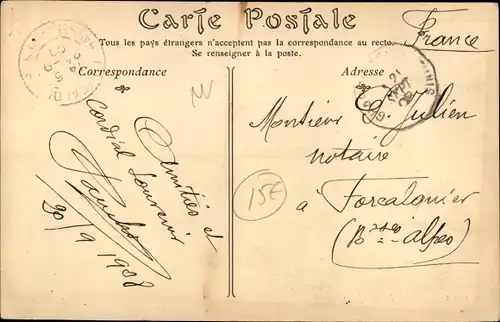 Carte Postale
Tous les pays étrangers n'acceptent pas la correspondance au recto.
Se renseigner à la poste.
Correspondance
Adresse
France
Amitiés et
Cordial Souvenir
20/9 1908
Monsieur E. Julien
notaire
à Forcalquier
(Bses-Alpes)
15€
21
SEPT